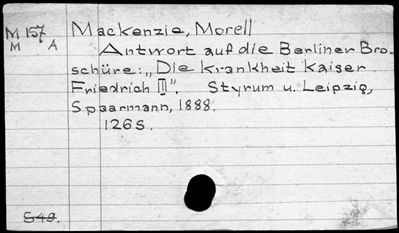 M 157
M A
Mackenzie, Morell
Antwort auf die Berliner Bro-
schüre: „Die Krankheit Kaiser
Friedrich III". Styrum u. Leipzig,
Spaarmann, 1888.
126S.
S49.